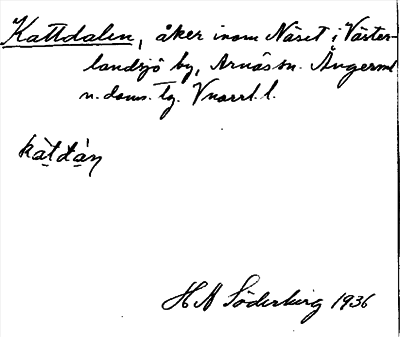 Kattdalen, åker inom Näset i Väster-
landsjö by, Arnäs sn. Ångerml.
n. doms. Tg.
kàtdàn
H N Söderberg 1936